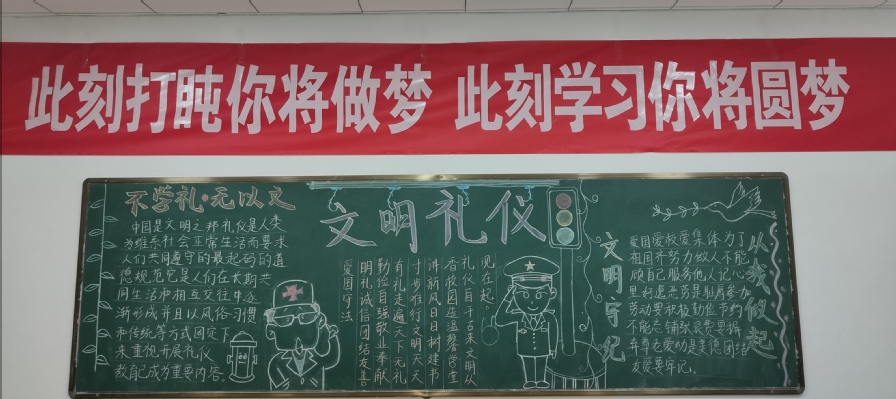 此刻打盹你将做梦 此刻学习你将圆梦
不学礼·无以立
中国是文明之邦礼仪是人类
为维系社会正常生活而要求
人们共同遵守的最起码的道
德规范它是人们在长期共
同生活和相互交往中逐
渐形成并且以风俗习惯
和传统等方式固定下
来重视开展礼仪
教育已成为重要内容。
文明礼仪
现在起。
礼仪自千古来文明从
香校园生温馨学堂
沐新风日日树建书
寸步难行文明天天
有礼走遍天下无礼
勤俭自强敬业奉献
明礼诚信团结友善
爱国守法
文明守纪
爱国爱校爱集体为了
祖国齐努力做人不能
顾自己服务他人记心
里好逸恶劳是耻辱参加
劳动要积极勤俭节约
不能忘铺张浪费要摒
弃尊老爱幼是美德团结
友爱要牢记。
从我做起